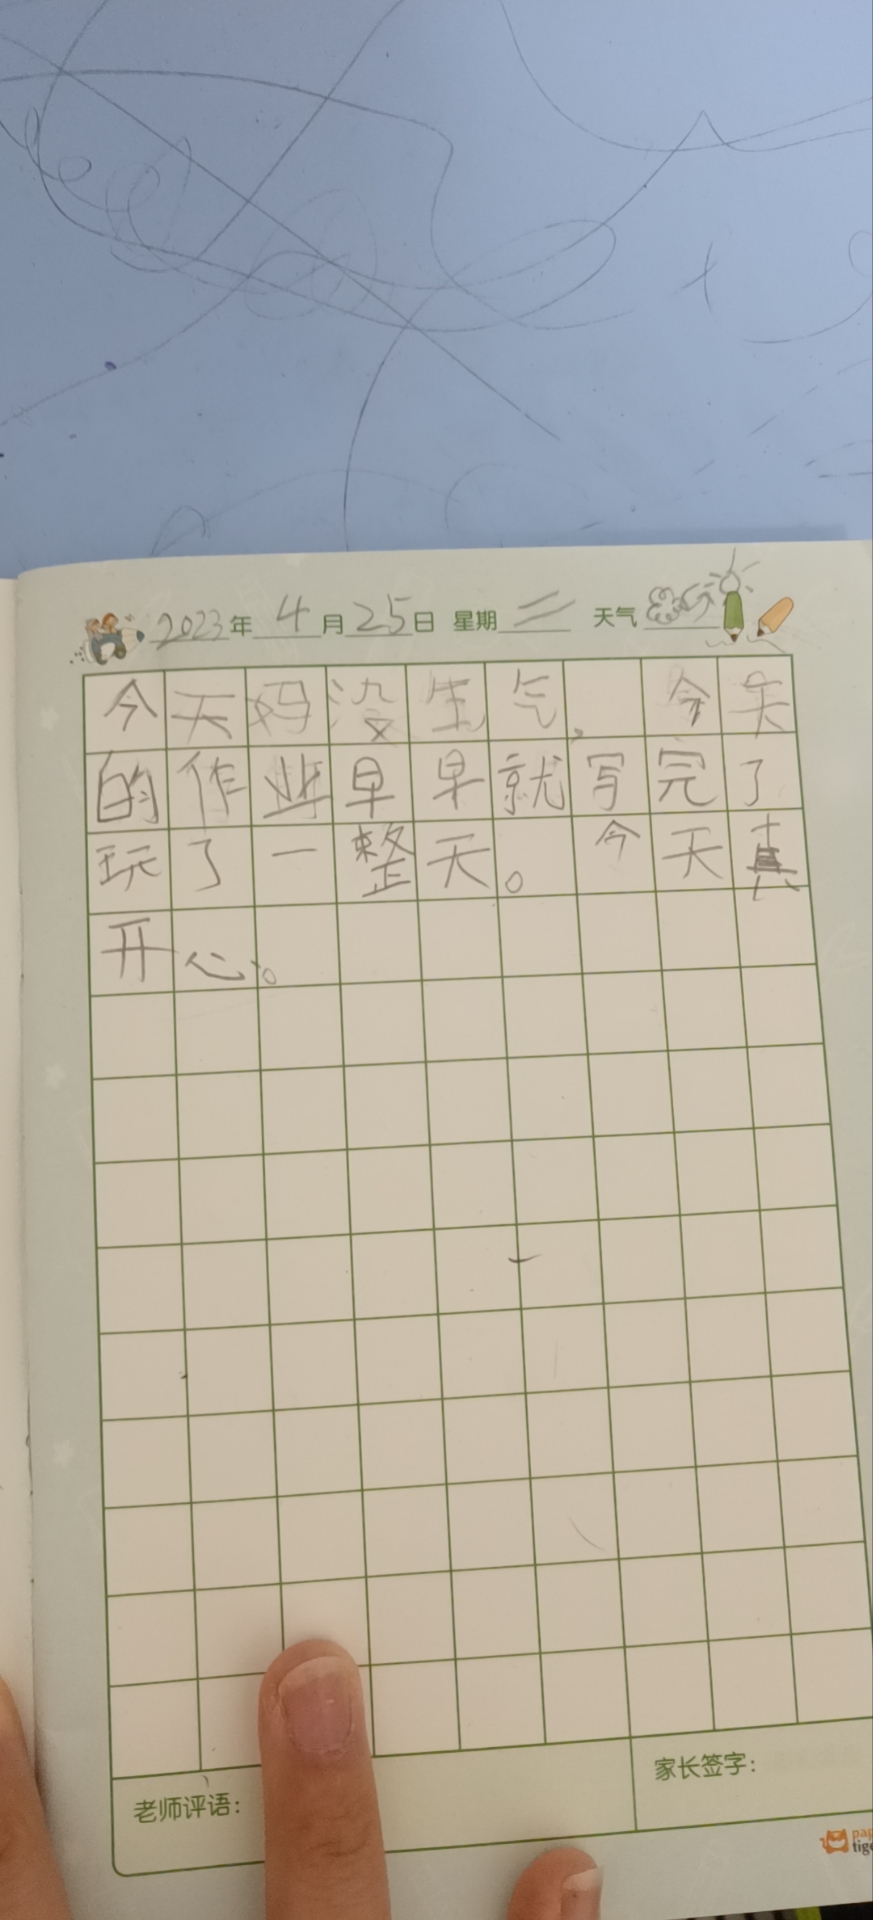 2023年4月25日 星期二 天气
今天妈没生气, 今天
的作业早早就写完了
玩了一整天。今天真
开心。
老师评语:
家长签字: